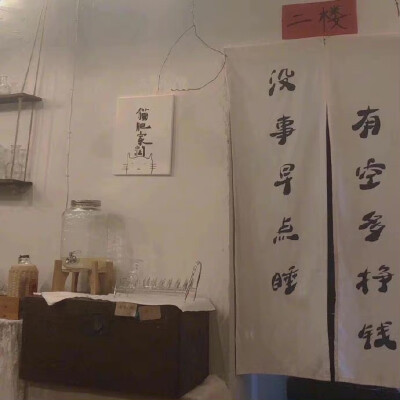 二楼
没事早点睡
有空多挣钱
猫肥家润